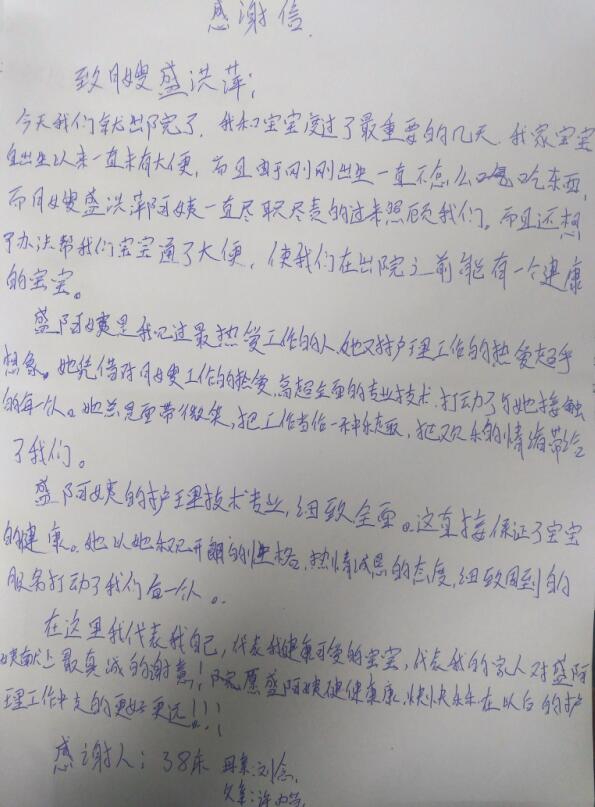 感谢信.
致月嫂盛洪萍:
今天我们就出院了,我和宝宝度过了最重要的几天,我家宝宝
自出生以来一直未有大便,而且由于刚刚出生一直不怎么吃东西,
而月嫂盛洪萍阿姨一直尽职尽责的过来照顾我们。而且还想
了办法帮我们宝宝通了大便,使我们在出院之前能有一个健康
的宝宝。
盛阿姨是我见过最热爱工作的人,她对护理工作的热爱超乎
想象。她凭借对月嫂工作的热爱,高超全面的专业技术,打动了与她接触
的每一个人。她总是面带微笑,把工作当作一种乐趣,把欢乐的情绪带给
了我们。
盛阿姨的护理技术专业,细致全面。这直接保证了宝宝
的健康。她以她开朗的性格,热情诚恳的态度,细致周到的
服务打动了我们每一个人。
在这里我代表我自己,代表我健康可爱的宝宝,代表我的家人对盛阿
姨献上最真诚的谢意!愿盛阿姨健健康康,快快乐乐在以后的护
理工作中走的更好更远!!!
感谢人:38床 母亲:刘念,
父亲:许